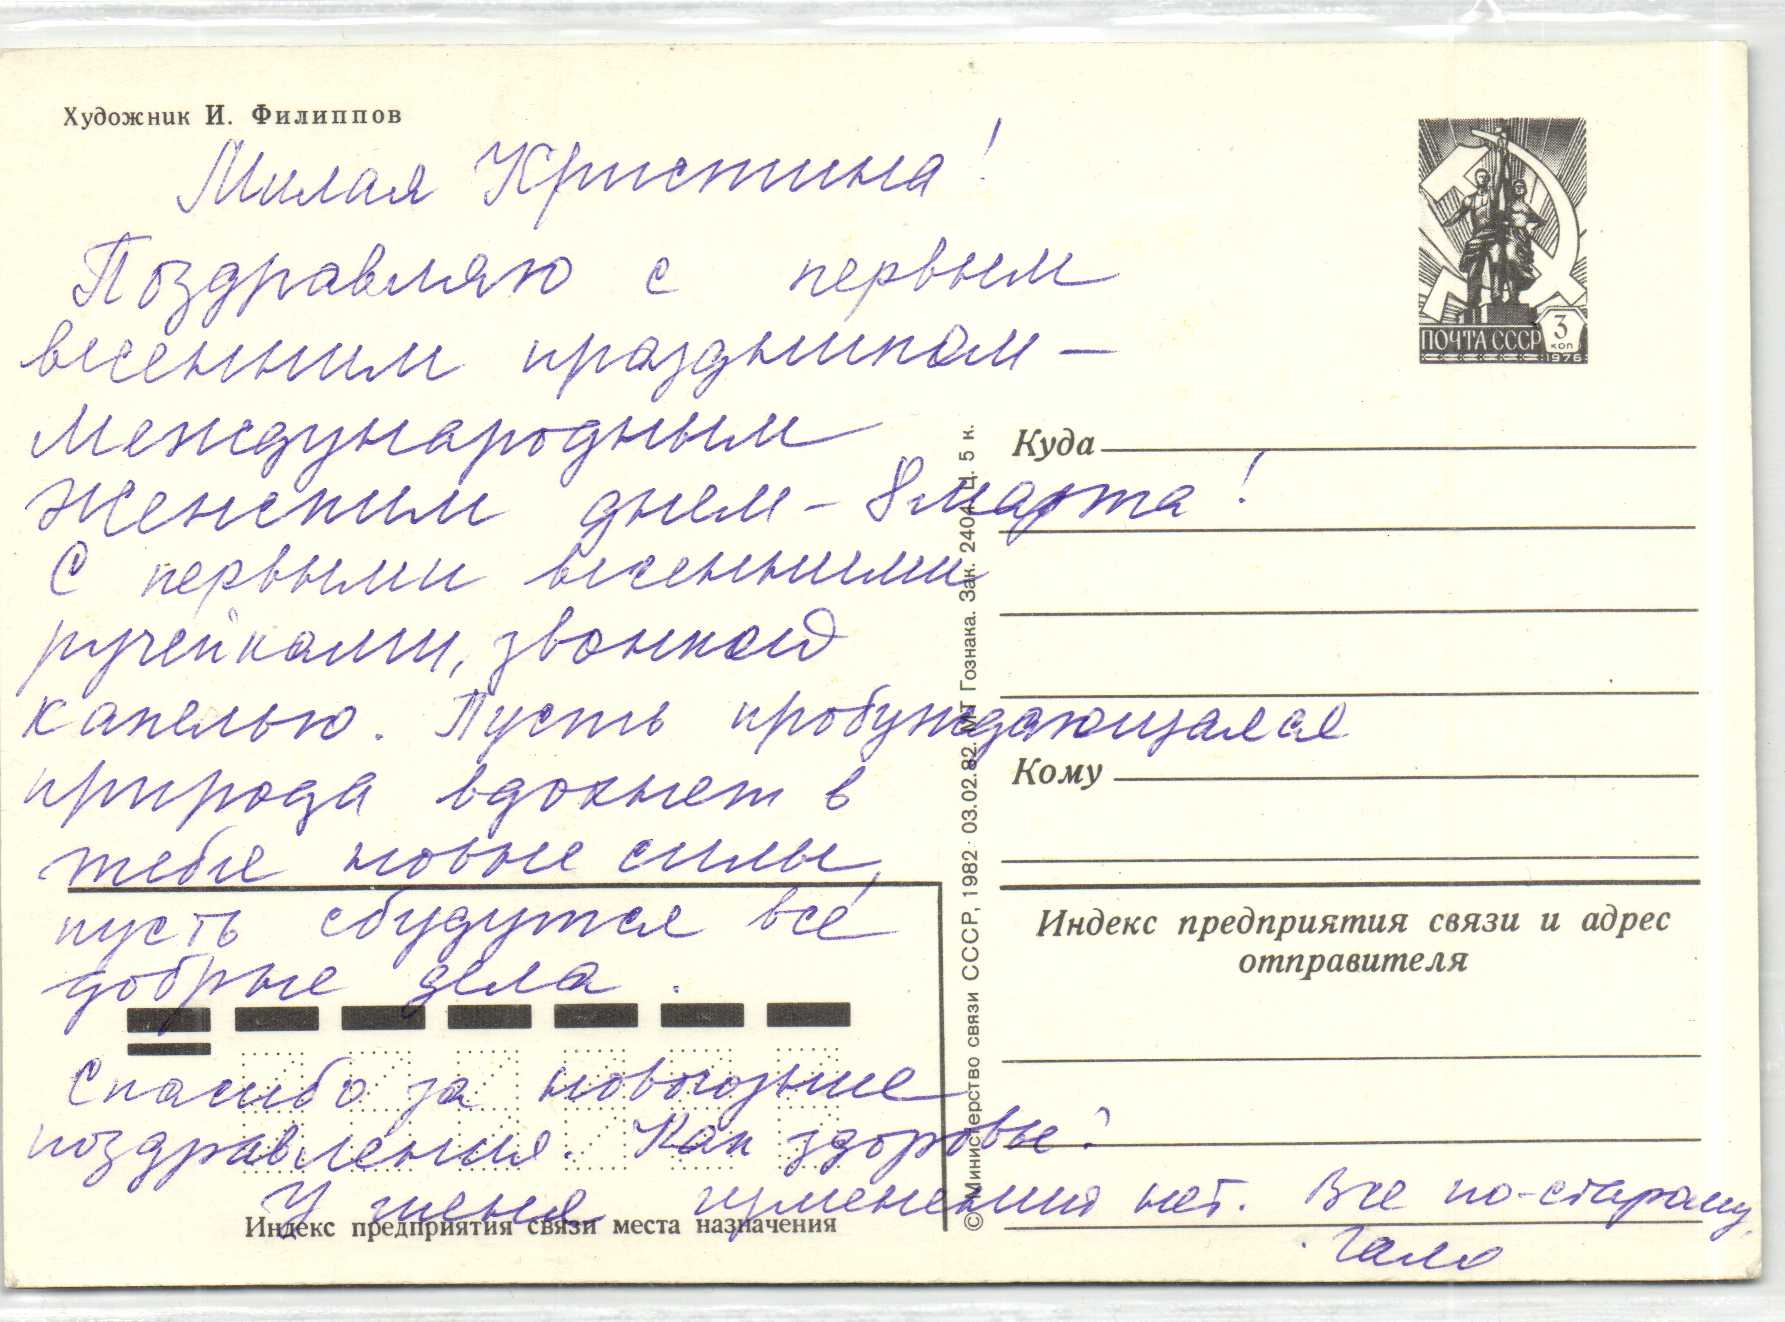 Художник И. Филиппов
Милая Кристина!
Поздравляю с первым
весенним праздником –
Международным
Женским днем – 8 марта!
С первыми весенними
ручейками, звонкой
капелью. Пусть пробуждающаяся
природа вдохнет в
тебя новые силы,
пусть сбудутся все
добрые дела.
Спасибо за новогодние
поздравления. Как здоровье?
У меня изменений нет. Все по-старому.
ПОЧТА СССР 3 коп 1976
Куда
Кому
Индекс предприятия связи и адрес
отправителя
Индекс предприятия связи места назначения
© Министерство связи СССР, 1982 · 03.02.82. МТ Гознака. Зак. 2404. Ц. 5 к.